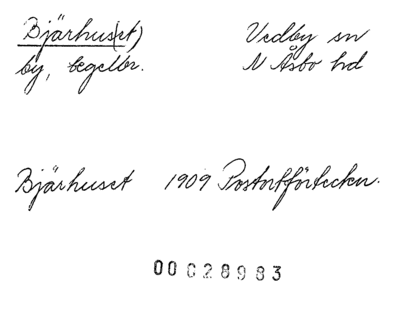 Bjärhus(et) Vedby sn
by, tegelbr. N Åsbo hd
Bjärhuset 1909 Postortförteckn.
00028983